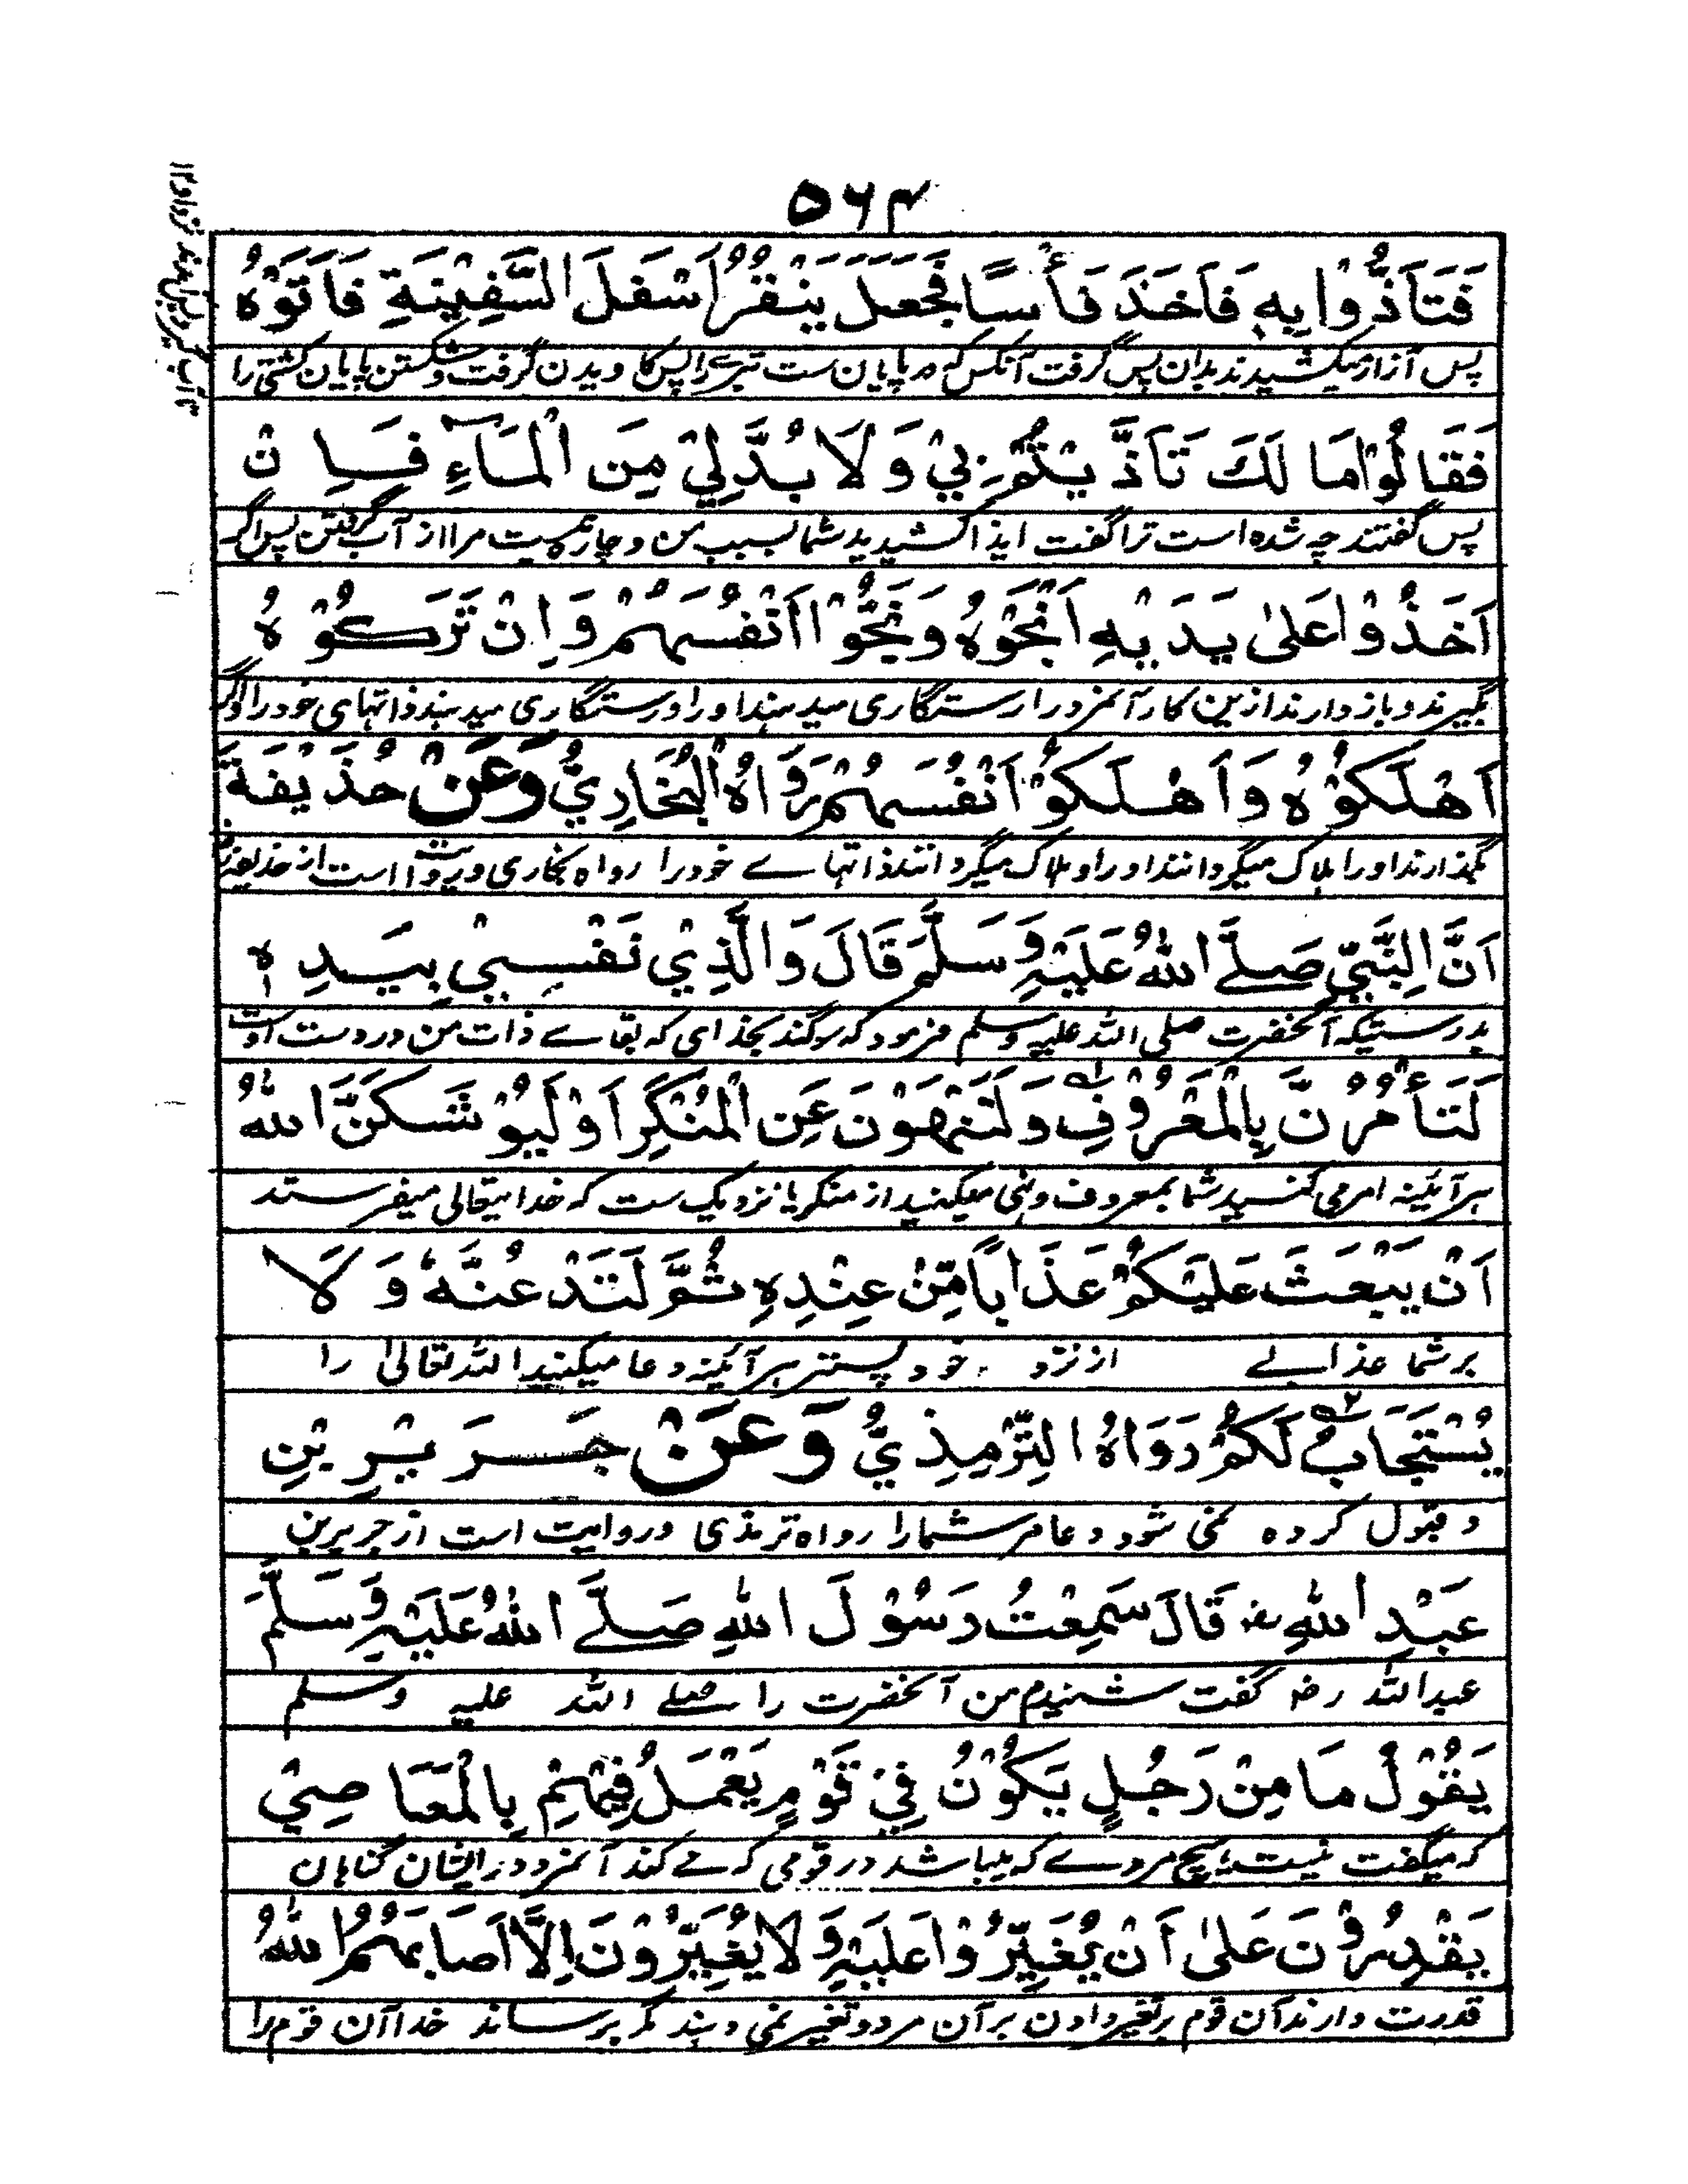 ۵۶۴
فَتَأَذُّوْا بِهٖ فَاَخَذَ فَأْسًا فَجَعَلَ يَنْقُرُ اَسْفَلَ السَّفِيْنَةِ فَاَتَوْهُ
پس آزار میکشیدند بدان پس گرفت آنکس که در پایان ست تبرے را پس کاویدن گرفت و شکستن پایان کشتی را
فَقَالُوْا مَا لَكَ تَاَذَّيْتُمْ بِيْ وَلَا بُدَّ لِيْ مِنَ الْمَآءِ فَاِنْ
پس گفتند چه شده است ترا گفت ایذا کشیدید شما بسبب من و چاره نیست مرا از آب گرفتن پس اگر
اَخَذُوْا عَلىٰ يَدَيْهِ اَنْجَوْهُ وَنَجَّوْا اَنْفُسَهُمْ وَاِنْ تَرَكُوْهُ
بگیرند و باز دارند ازین کار آنمرد را رستگاری میدهند او را و رستگاری میدهند ذاتهای خود را و اگر
اَهْلَكُوْهُ وَاَهْلَكُوْا اَنْفُسَهُمْ رَوَاهُ الْبُخَارِيُّ وَعَنْ حُذَيْفَةَ
بگذارند او را هلاک میگردانند او را و هلاک میگردانند ذاتهاے خود را رواه بخاری و روایت است از حذیفه
اَنَّ النَّبِيَّ صَلَّے اللّٰهُ عَلَيْهِ وَسَلَّمَ قَالَ وَالَّذِيْ نَفْسِيْ بِيَدِهٖ
بدرستیکه آنحضرت صلی الله علیه وسلم فرمود که سوگند بخدای که بقاے ذات من در دست اوست
لَتَأْمُرُنَّ بِالْمَعْرُوْفِ وَلَتَنْهَوْنَ عَنِ الْمُنْكَرِ اَوْ لَيُوْشَكَنَّ اللّٰهُ
هر آئینه امر می کنید شما بمعروف و نهی میکنید از منکر یا نزدیک ست که خدا یتعالی میفرستد
اَنْ يَبْعَثَ عَلَيْكُمْ عَذَابًا مِّنْ عِنْدِهٖ ثُمَّ لَتَدْعُنَّهٗ وَلَا
بر شما عذابے از نزد خود پستر هر آئینه دعا میکنید الله تعالیٰ را
يُسْتَجَابُ لَكُمْ رَوَاهُ التِّرْمِذِيُّ وَعَنْ جَرِيْرِ بْنِ
و قبول کرده نمی شود دعا مر شما را رواه ترمذی و روایت است از جریر بن
عَبْدِ اللّٰهِ رض قَالَ سَمِعْتُ رَسُوْلَ اللّٰهِ صَلَّے اللّٰهُ عَلَيْهِ وَسَلَّمَ
عبدالله رض گفت شنیدم من آنحضرت را صلے الله علیه وسلم
يَقُوْلُ مَا مِنْ رَجُلٍ يَكُوْنُ فِيْ قَوْمٍ يَعْمَلُ فِيْهِمْ بِالْمَعَاصِيْ
که میگفت نیست هیچ مردے که میباشد در قومی که مے کند آنمرد در ایشان گناهان
يَقْدِرُوْنَ عَلىٰ اَنْ يُّغَيِّرُوْا عَلَيْهِ وَلَا يُغَيِّرُوْنَ اِلَّا اَصَابَهُمُ اللّٰهُ
قدرت دارند آن قوم بر تغیر دادن بر آن مرد و تغییر نمی دهند مگر برساند خدا آن قوم را